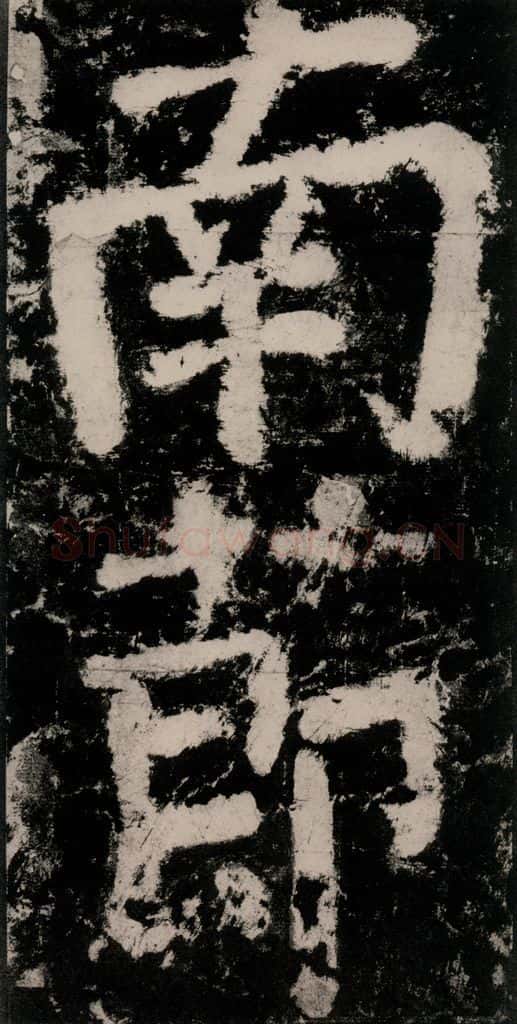 南節
Shufawang.CN